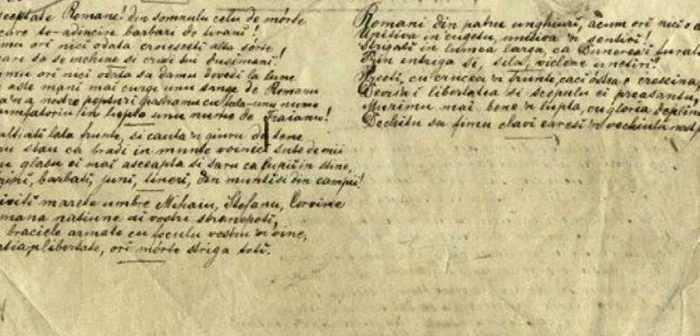 Romane! din somnulu celu de mórte
care te-adincire barbari de tirani!
ori nici odata croiesceti alta sórte
care sa se inchine si crudii tei dusimani!
ori nici odata sa damu dovedi la lume
aste mani mai curge unu sange de Romanu
a nostre pepturi pastramu cu fala-unu nume
Triumfatoriu in lupte unu nume de Traianu!
lata frunte, si cauta 'n giuru de tene
stau ca bradi in munte voinici sute de mii
glasu ei mai ascepta si saru ca lupii in stine,
barbati, juni, tineri, din munti si din campii!
marete umbre Mihaiu, Stefanu, Corvine
natiune ai vostri stranepoti,
braciele armate cu foculu vostru 'n vine,
libertate, ori mórte striga toti.
Romani din patru unghiuri, acum ori nici
Uniti-va in cugetu, uniti-va 'n sentiri!
Strigati in lumea larga, ca Dunarea-i furata
Prin intriga si sila, viclene uneltiri!
Preoti, cu crucea 'n frunte, caci óstea e crestina,
Devisa-i libertatea si scopulu ei preasantu,
Murimu mai bene 'n lupta, cu gloria deplina
Decâtu sa fimu sclavi earesi 'n vechiulu nost